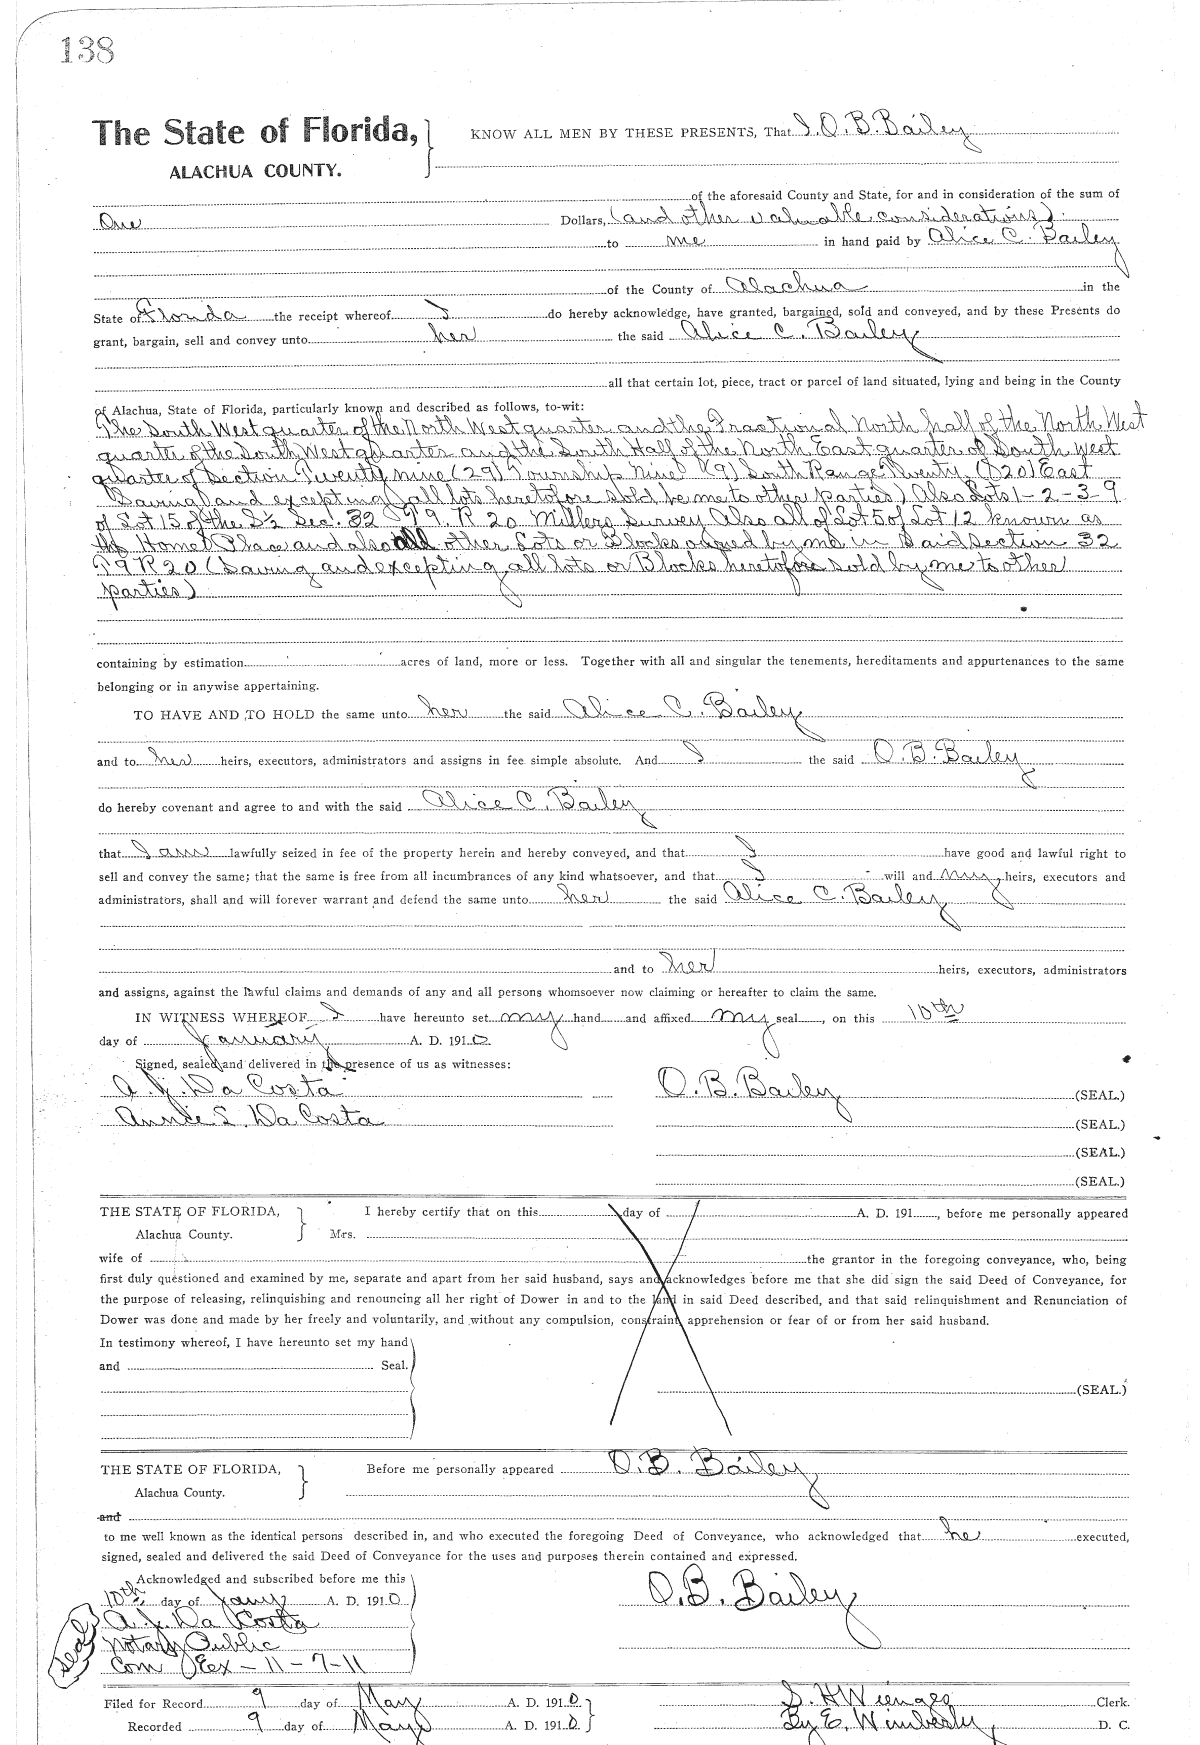 138
The State of Florida,
ALACHUA COUNTY.
KNOW ALL MEN BY THESE PRESENTS, That I O. B. Bailey
of the aforesaid County and State, for and in consideration of the sum of
One Dollars, (and other valuable considerations)
to me in hand paid by Alice C. Bailey
of the County of Alachua in the
State of Florida the receipt whereof I do hereby acknowledge, have granted, bargained, sold and conveyed, and by these Presents do
grant, bargain, sell and convey unto her the said Alice C. Bailey
all that certain lot, piece, tract or parcel of land situated, lying and being in the County
of Alachua, State of Florida, particularly known and described as follows, to-wit:
The South West quarter of the North West quarter and the Fractional North half of the North West
quarter of the South West quarter and the South Half of the North East quarter of South West
quarter of Section Twenty nine (29) Township Nine (9) South Range Twenty (20) East
(Saving and excepting all lots heretofore sold be me to other parties) Also Lots 1-2-3-9
of Lot 15 of the S½ Sec. 32 T9. R 20 Millers Survey Also all of Lot 5 of Lot 12 known as
the Home Place and also all other Lots or Blocks owned by me in Said Section 32
T9 R 20 (Saving and excepting all lots or Blocks heretofore sold by me to other
parties)
containing by estimation acres of land, more or less. Together with all and singular the tenements, hereditaments and appurtenances to the same
belonging or in anywise appertaining.
TO HAVE AND TO HOLD the same unto her the said Alice C. Bailey
and to her heirs, executors, administrators and assigns in fee simple absolute. And I the said O. B. Bailey
do hereby covenant and agree to and with the said Alice C. Bailey
that I am lawfully seized in fee of the property herein and hereby conveyed, and that I have good and lawful right to
sell and convey the same; that the same is free from all incumbrances of any kind whatsoever, and that I will and my heirs, executors and
administrators, shall and will forever warrant and defend the same unto her the said Alice C. Bailey
and to her heirs, executors, administrators
and assigns, against the lawful claims and demands of any and all persons whomsoever now claiming or hereafter to claim the same.
IN WITNESS WHEREOF I have hereunto set my hand and affixed my seal, on this 10th
day of January A. D. 1910.
Signed, sealed and delivered in the presence of us as witnesses:
A. J. Da Costa O. B. Bailey (SEAL.)
Annie L. Da Costa (SEAL.)
(SEAL.)
(SEAL.)
THE STATE OF FLORIDA,
Alachua County.
I hereby certify that on this day of A. D. 191 , before me personally appeared
Mrs.
wife of the grantor in the foregoing conveyance, who, being
first duly questioned and examined by me, separate and apart from her said husband, says and acknowledges before me that she did sign the said Deed of Conveyance, for
the purpose of releasing, relinquishing and renouncing all her right of Dower in and to the land in said Deed described, and that said relinquishment and Renunciation of
Dower was done and made by her freely and voluntarily, and without any compulsion, constraint, apprehension or fear of or from her said husband.
In testimony whereof, I have hereunto set my hand
and Seal.
(SEAL.)
THE STATE OF FLORIDA,
Alachua County.
Before me personally appeared O. B. Bailey
and
to me well known as the identical persons described in, and who executed the foregoing Deed of Conveyance, who acknowledged that he executed,
signed, sealed and delivered the said Deed of Conveyance for the uses and purposes therein contained and expressed.
Acknowledged and subscribed before me this
10th day of Jany A. D. 1910
O. B. Bailey
A. J. Da Costa
Notary Public
Com Ex - 11 - 7 - 11
seal
Filed for Record 9 day of May A. D. 1910. S. H Wienges Clerk.
Recorded 9 day of May A. D. 1910. By E. Wimberly D. C.